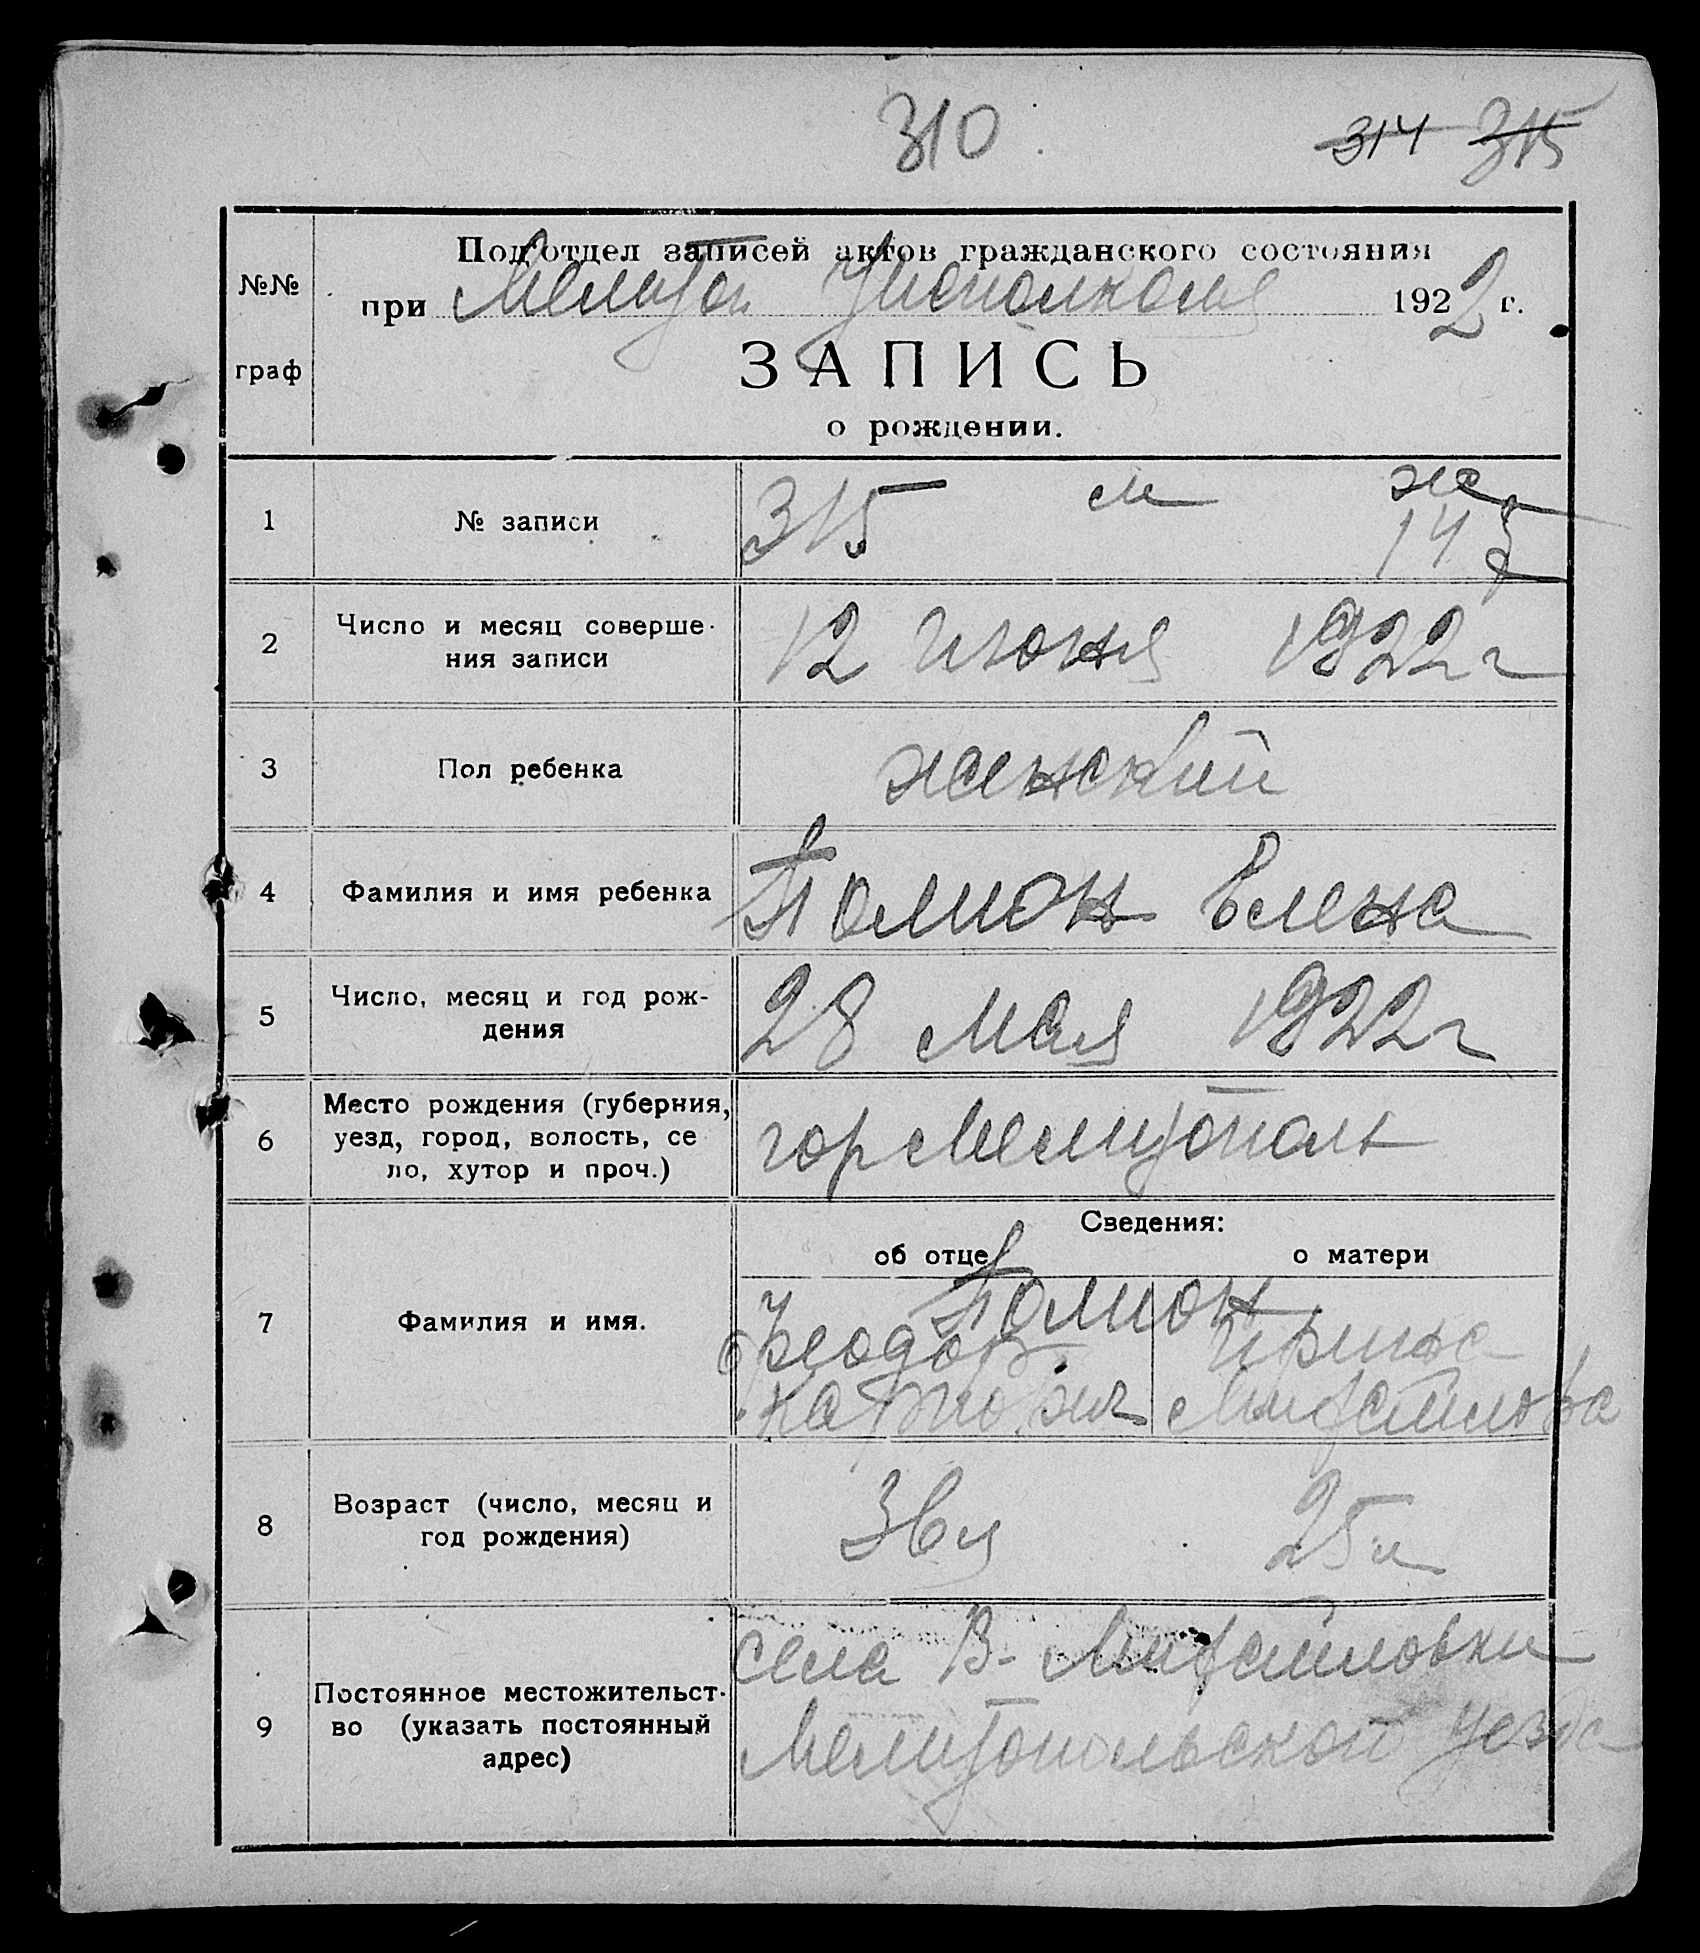 310
314 315
Под'отдел записей актов гражданского состояния
№№
при Мелитоп Уисполкома 1922 г.
граф
ЗАПИСЬ
о рождении.
1 № записи 315 м ж
14
2 Число и месяц соверше-
ния записи 12 июня 1922 г
3 Пол ребенка женский
4 Фамилия и имя ребенка Помион Елена
5 Число, месяц и год рож-
дения 28 мая 1922 г
6 Место рождения (губерния,
уезд, город, волость, се
ло, хутор и проч.) гор Мелитополь
Сведения:
об отце о матери
7 Фамилия и имя. Помион
Феодор Ирина
Михайлова
8 Возраст (число, месяц и
год рождения) 36 л 25 л
9 Постоянное местожительст-
во (указать постоянный
адрес)
села В- Михайловки
Мелитопольской уезда